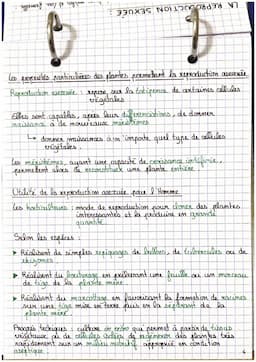 LA REPRODUCTION SEXUÉE :
Les propriétés particulières des plantes permettent la reproduction asexuée.
Reproduction asexuée : repose sur la totipotence de certaines cellules
végétales
Elles sont capables, après leur différenciation, de donner
naissance à de nouveaux méristèmes
↳ donner naissances à n'importe quel type de cellules
végétales.
Les méristèmes, ayant une capacité de croissance infinie,
permettent alors de reconstituer une plante entière
Utilité de la reproduction asexuée pour l'Homme
Les horticulteurs : mode de reproduction pour cloner des plantes
intéressantes et la produire en grande
quantité.
Selon les espèces :
▶ Réalisent de simples repiquages de bulbes, de tubercules ou de
rhizomes.
▶ Réalisent du bouturage en prélevant une feuille ou un morceau
de tige de la plante mère.
▶ Réalisent du marcottage en favorisant la formation de racines
sur une tige mise en terre puis en la séparant de la
plante mère.
Progrès techniques : culture in vitro qui permet à partir de tissus
végétaux, ou de cellules isolées de régénérer des plantes très
rapidement sur un milieu nutritif approprié en condition
aseptique.